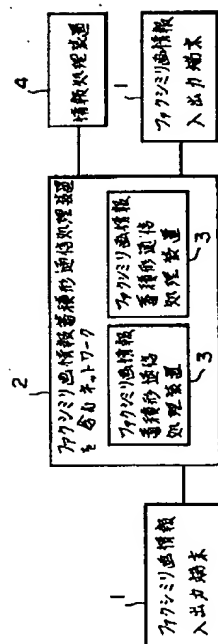 1
ファクシミリ画情報
入出力端末
2
ファクシミリ画情報蓄積形通信処理装置
を含むネットワーク
ファクシミリ画情報
蓄積形通信
処理装置
3
ファクシミリ画情報
蓄積形通信
処理装置
3
4
情報処理装置
1
ファクシミリ画情報
入出力端末